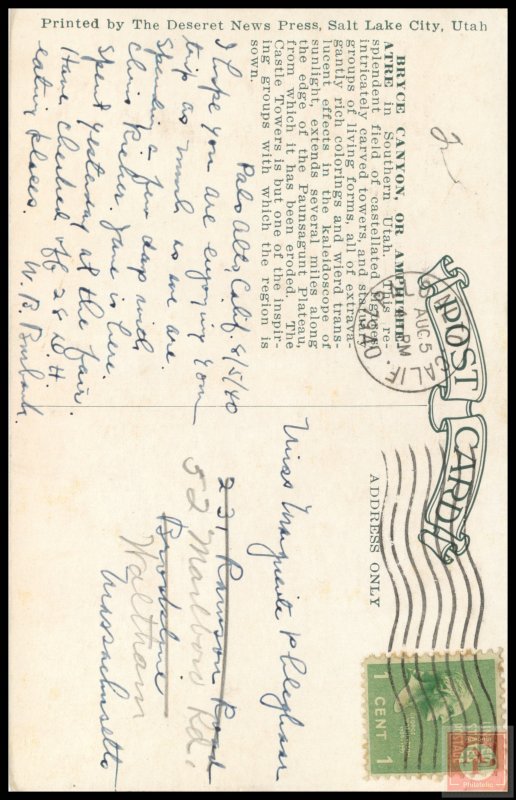 Printed by The Deseret News Press, Salt Lake City, Utah
BRYCE CANYON, OR AMPHITHE-
ATRE in Southern Utah. This re-
splendent field of castellated figures,
intricately carved towers, and statuary
groups of living forms, all of extrava-
gantly rich colorings and wierd trans-
lucent effects in the kaleidoscope of
sunlight, extends several miles along
the edge of the Paunsagunt Plateau,
from which it has been eroded. The
Castle Towers is but one of the inspir-
ing groups with which the region is
sown.
Palo Alto, Calif. 8/5/40
I hope you are enjoying your
trip as much as we are.
Spending a few days with
Jane is here.
Spent yesterday at the fair.
Have checked off
eating places.
POST CARD
ADDRESS ONLY
CALIF.
AUG 5
PM
1940
Miss Marguerite
231 Road
52 Marlboro Rd.
Brookline
Waltham
Massachusetts
1 CENT 1
Philatelic